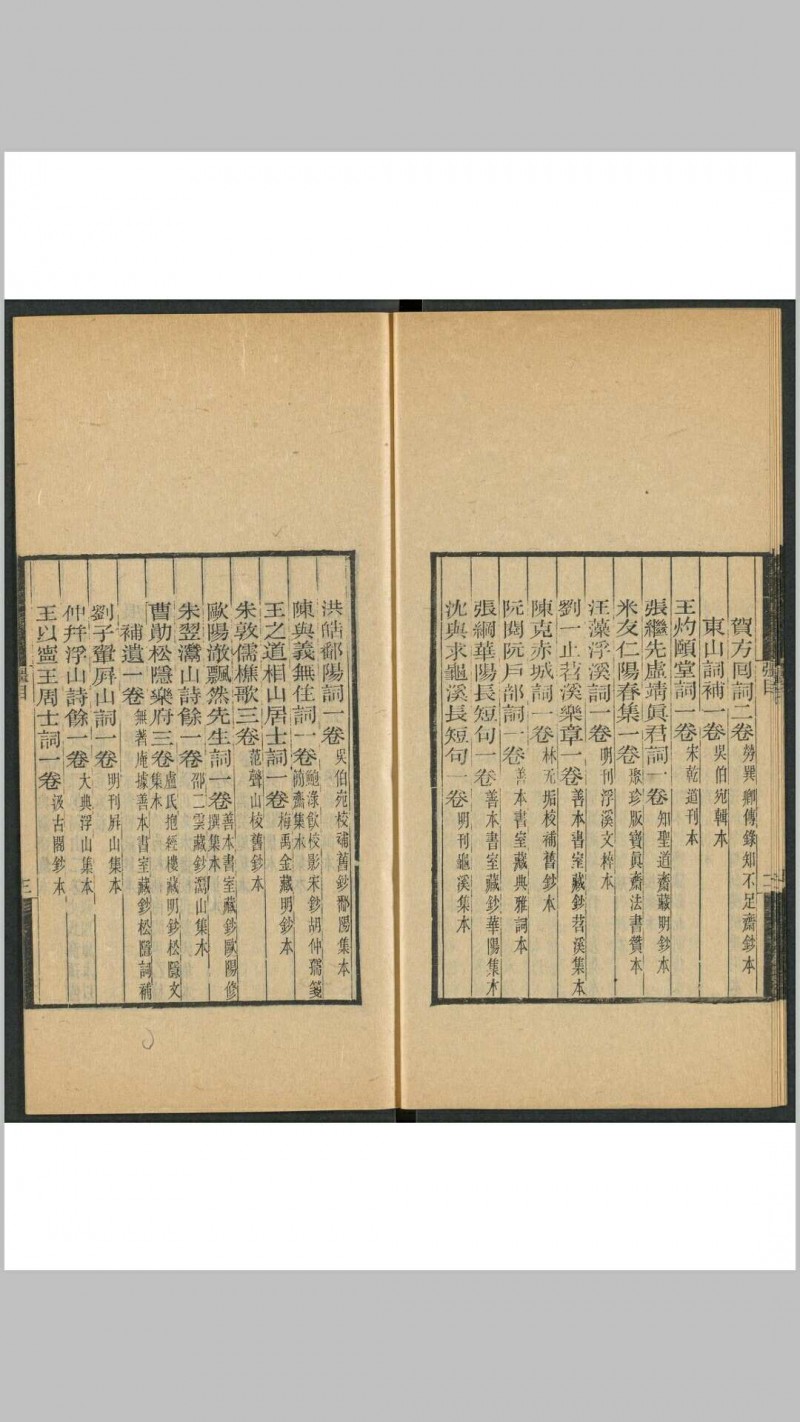 賀方回詞二卷 勞巽卿傳錄知不足齋鈔本
東山詞補一卷 吳伯宛輯本
王灼頤堂詞一卷 宋乾道刊本
張繼先虛靖眞君詞一卷 知聖道齋藏明鈔本
米友仁陽春集一卷 聚珍版寶眞齋法書贊本
汪藻浮溪詞一卷 明刊浮溪文粹本
劉一止苕溪樂章一卷 善本書室藏鈔苕溪集本
陳克赤城詞一卷 林无垢校補舊鈔本
阮閱阮戶部詞一卷 善本書室藏典雅詞本
張綱華陽長短句一卷 善本書室藏鈔華陽集本
沈與求龜溪長短句一卷 明刊龜溪集本
二
洪皓鄱陽詞一卷 吳伯宛校補舊鈔鄱陽集本
陳與義無住詞一卷 鮑淥飮校影宋鈔胡仲孺箋
簡齋集本
王之道相山居士詞一卷 梅禹金藏明鈔本
朱敦儒樵歌三卷 范聲山校舊鈔本
歐陽澈飄然先生詞一卷 善本書室藏鈔歐陽修
撰集本
朱翌灊山詩餘一卷 邵二雲藏鈔灊山集本
曹勛松隱樂府三卷 盧氏抱經樓藏明鈔松隱文
集本
補遺一卷 無著庵據善本書室藏鈔松隱詞補
劉子翬屛山詞一卷 明刊屛山集本
仲幷浮山詩餘一卷 大典浮山集本
王以寧王周士詞一卷 汲古閣鈔本
三